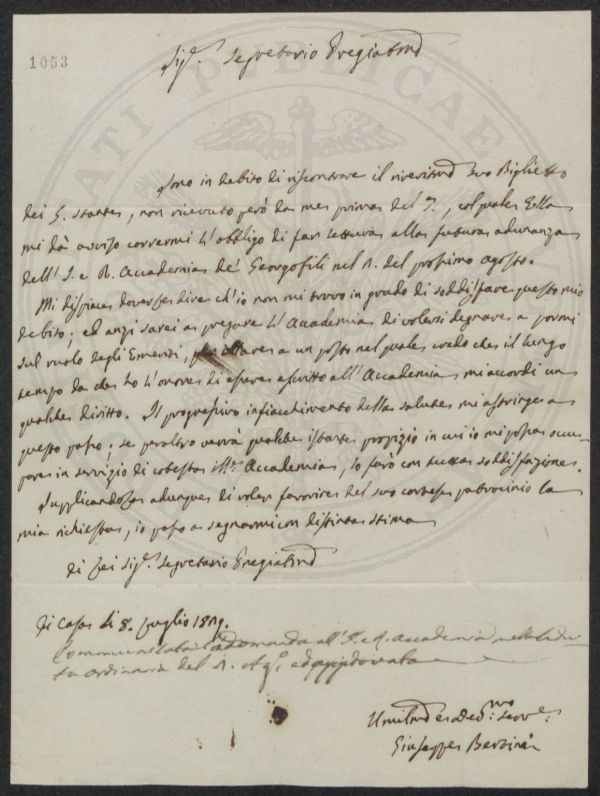 1053
Sig.r Segretario Pregiatmo
Sono in debito di riscontrare il riveritmo suo Biglietto
dei 5. stante, non ricevuto però da me prima del 7, col quale Ella
mi dà avviso corrermi l'obbligo di far lettura alla futura adunanza
dell'I. e R. Accademia de' Georgofili nel dì. del prossimo agosto.
Mi dispiace dover dire ch'io non mi trovo in grado di soddisfare questo mio
debito; ed anzi sarei a pregare l'Accademia di volersi degnare a pormi
sul ruolo degli Emeriti, a un posto nel quale credo che il lungo
tempo da che ho l'onore di essere ascritto all'Accademia, mi accordi un
qualche diritto. Il progressivo infiacchimento della salute mi astringe a
questo passo; se peraltro verrà qualche istante propizio in cui io mi possa occu-
pare in servizio di cotesta Ill.e Accademia, lo farò con tutta soddisfazione.
Supplicandola adunque di voler favorire del suo cortese patrocinio la
mia richiesta, io passo a segnarmi con distinta stima
di Lei Sig.r Segretario Pregiatmo
Di Casa li 8. Luglio 1819.
Communicata la domanda all'I. e R. Accademia nella Sedu-
ta ordinaria del Ag. ed approvata
Umilmo e Dedmo Serve.
Giuseppe
ATI PUBLICAE